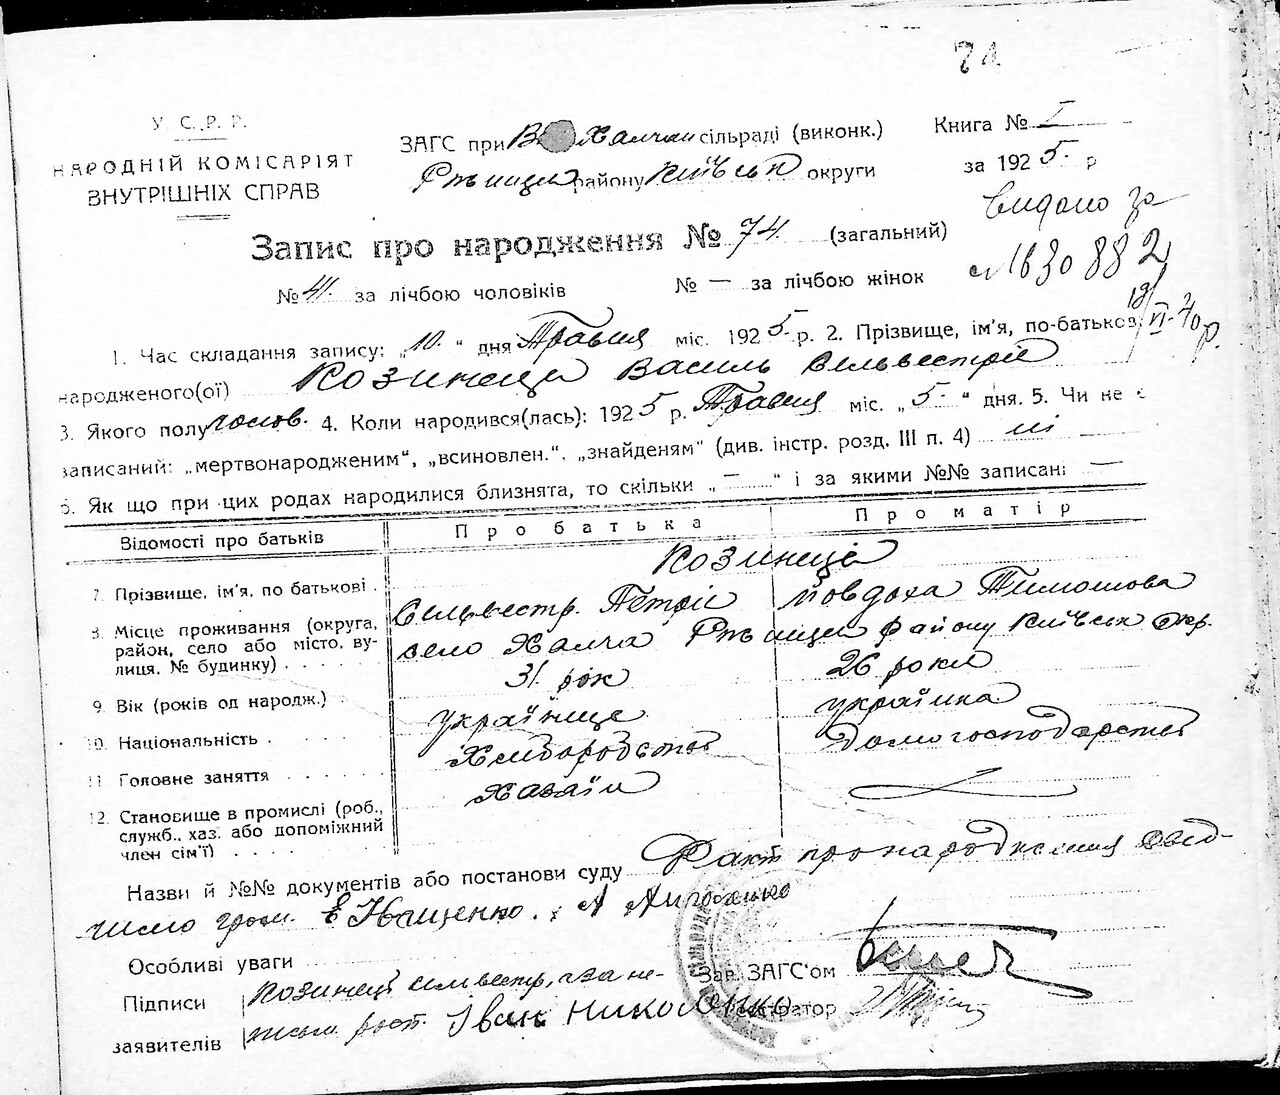 74
У. С. Р. Р.
НАРОДНІЙ КОМІСАРІЯТ
ВНУТРІШНІХ СПРАВ
ЗАГС при Халчан сільраді (виконк.)
Ржищев району Київськ округи
Книга № I
за 1925 р
Видано за
1630882
19/VI-40 р.
Запис про народження № 74 (загальний)
№ 41. за лічбою чоловіків № — за лічбою жінок
1. Час складання запису: „10." дня Травня міс. 1925 р. 2. Прізвище, ім'я, по-батькові
народженого(ої) Козинець Василь Сельвестрів
3. Якого полу чолов. 4. Коли народився(лась): 1925 р. Травня міс. „5." дня. 5. Чи не є
записаний: „мертвонародженим", „всиновлен.", „знайденям" (див. інстр. розд. III п. 4) ні
6. Як що при цих родах народилися близнята, то скільки „—" і за якими №№ записані —
Відомості про батьків Про батька Про матір
Козинець
7. Прізвище, ім'я, по батькові . Сельвестр. Петрів Йовдоха Тимошова
8. Місце проживання (округа, район, село або місто, вулиця, № будинку) . . . . село Халча Ржищев району Київськ окр.
9. Вік (років од народж.) . 31 рік 26 роки
10. Національність . українець українка
11. Головне заняття . . . . . . Хліборобство Домогосподарство
12. Становище в промислі (роб., Хазаїн
служб., хаз. або допоміжний
член сім'ї) . . . .
Назви й №№ документів або постанови суду Факт про народження свід-
чило гром. Є Іващенко.
Особливі уваги
Підписи Козинець сельвестр, а за не-
заявителів письм. рост. Іван Николенко
Зав. ЗАГС'ом
Реєстратор